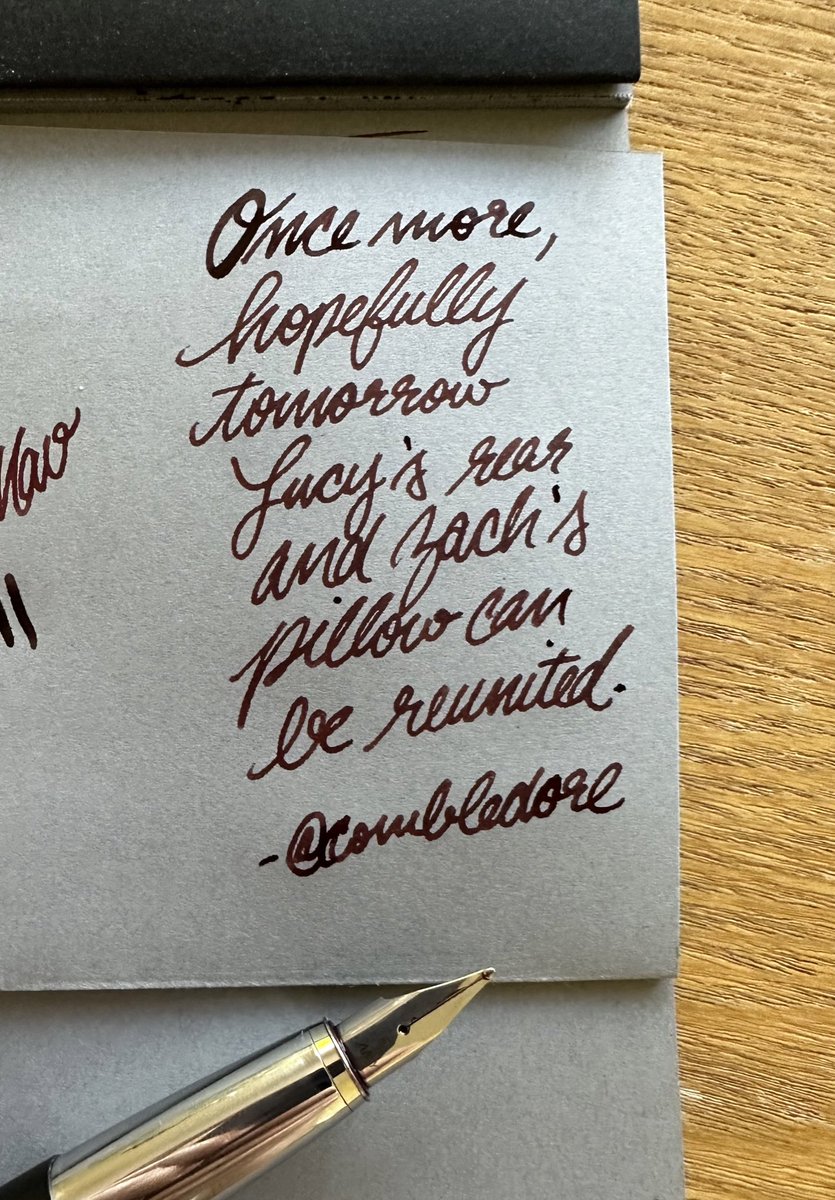 Once more,
hopefully
tomorrow
Lucy's rear
and Zach's
pillow can
be reunited.
- @combledore